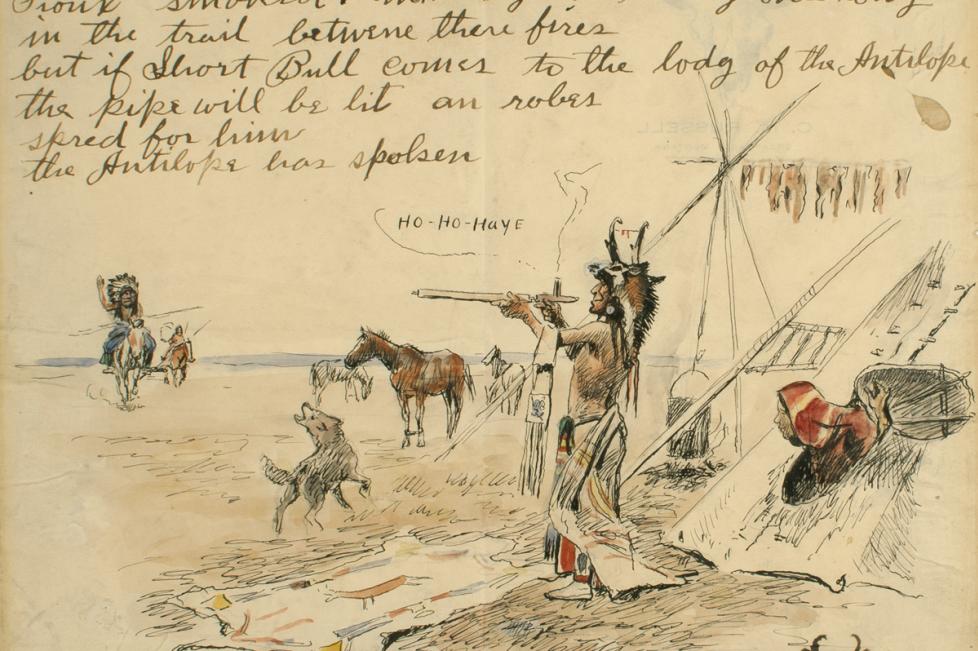 in the trail betwene there fires
but if Short Bull comes to the lodg of the Antilope
the pipe will be lit an robes
spred for him
the Antilope has spoken
HO-HO-HAYE